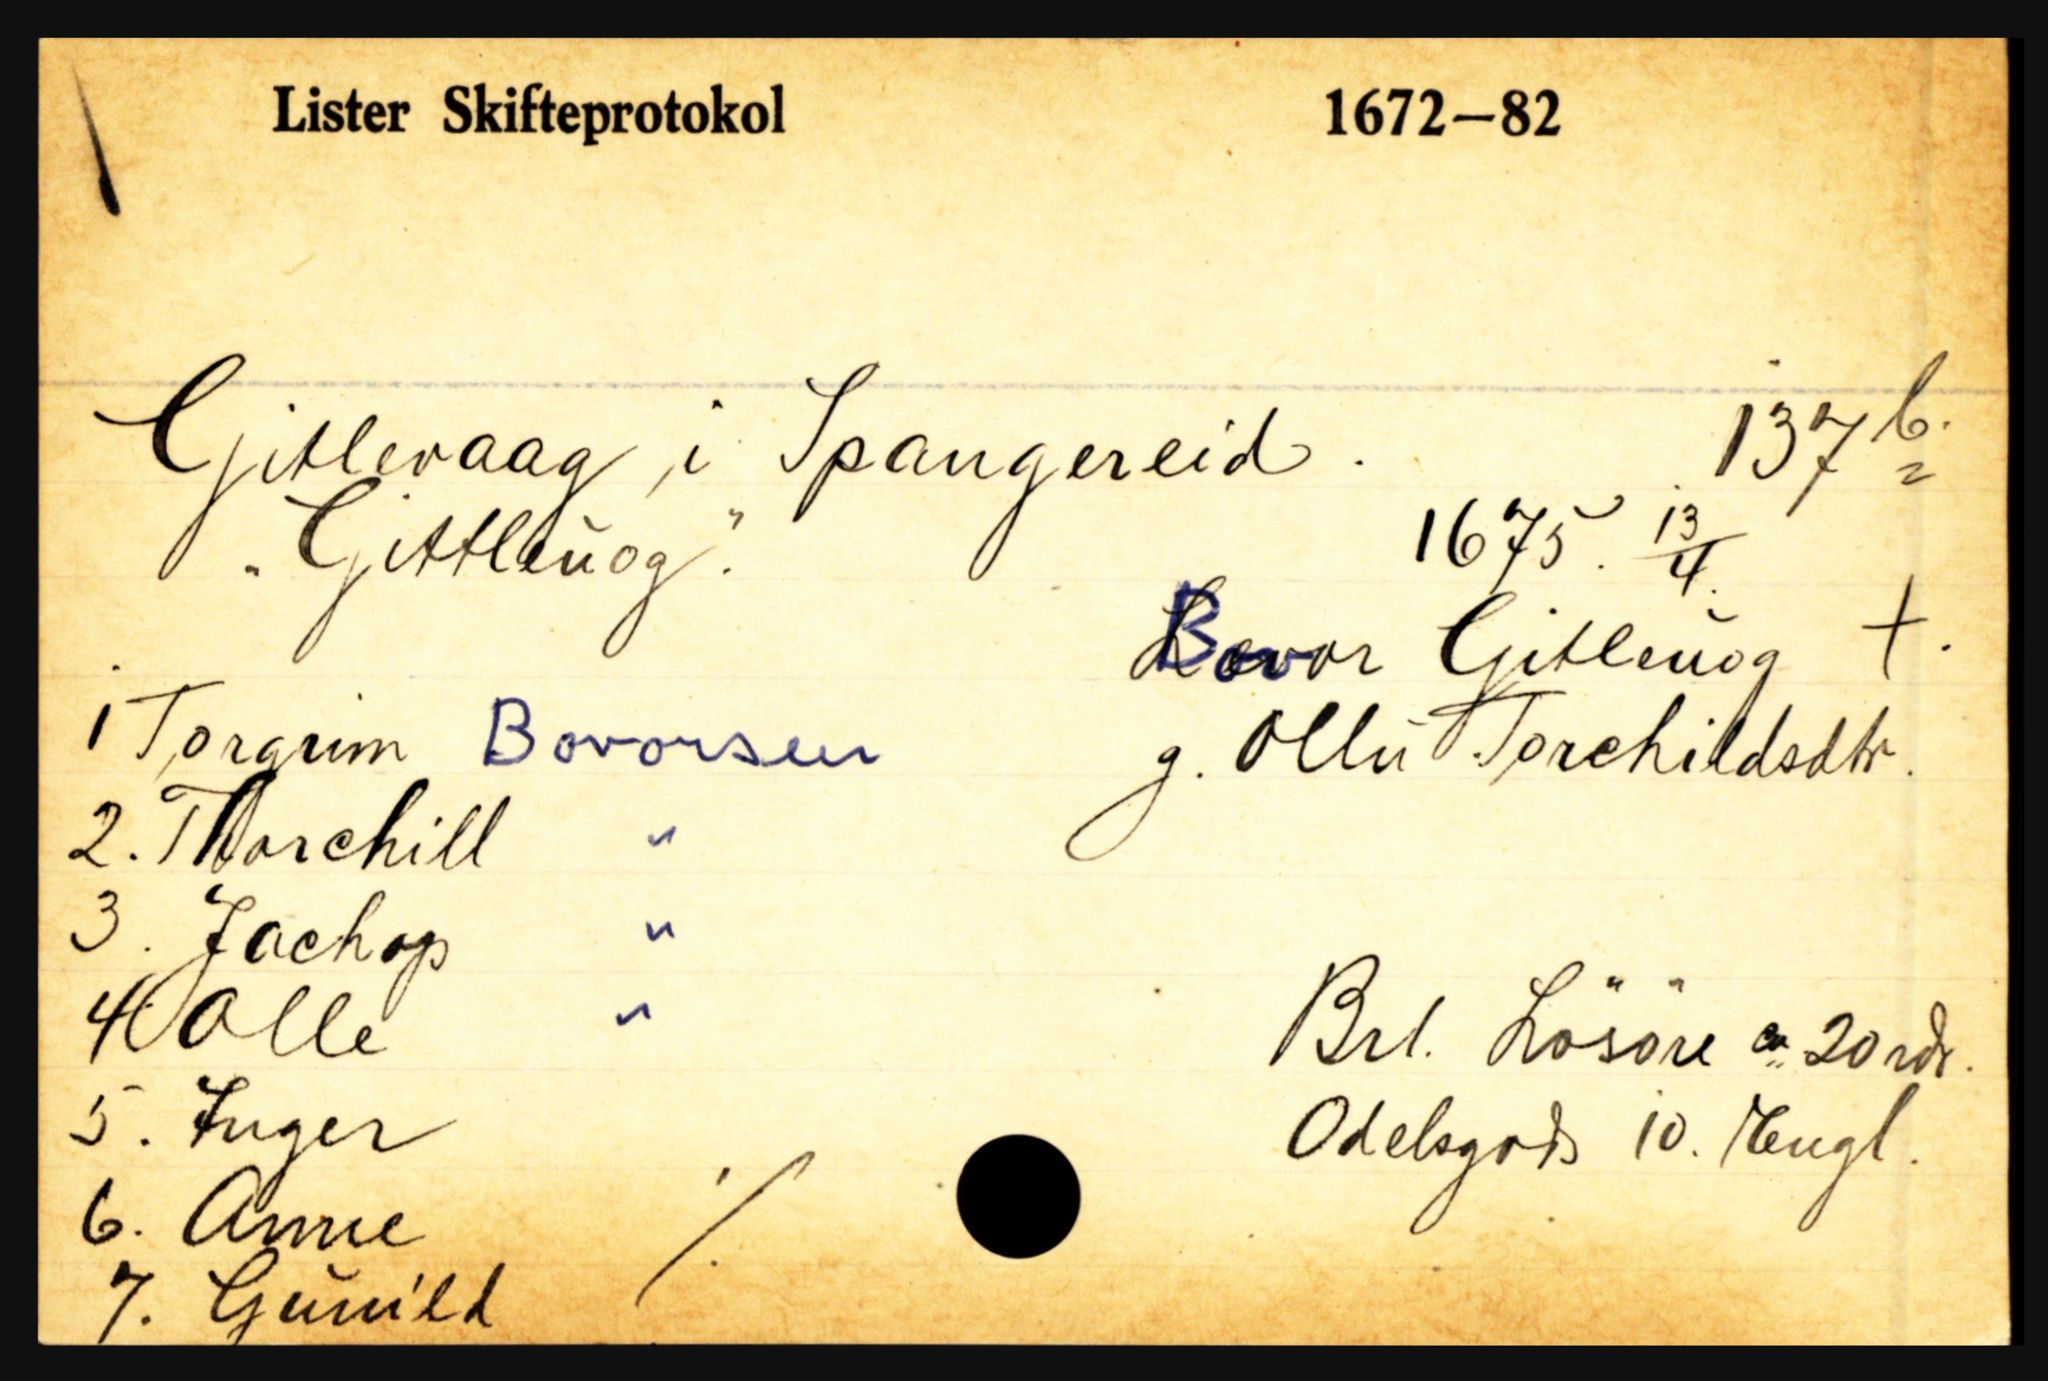 Lister Skifteprotokol 1672—82
Gitlevaag i Spangereid. 137 b.
"Gittleŭog". 1675. 13/4.
Bovor Gitleŭog †.
g. Ollŭ Torchildsdtr.
1 Torgrim Bovorsen
2. Thorchill "
3. Jachop "
4 Olle "
5. Inger
6. Anne
7. Gŭnild
Brl. Lösöre ca 20 rdr.
Odelsgods 10. Engl.
·/.